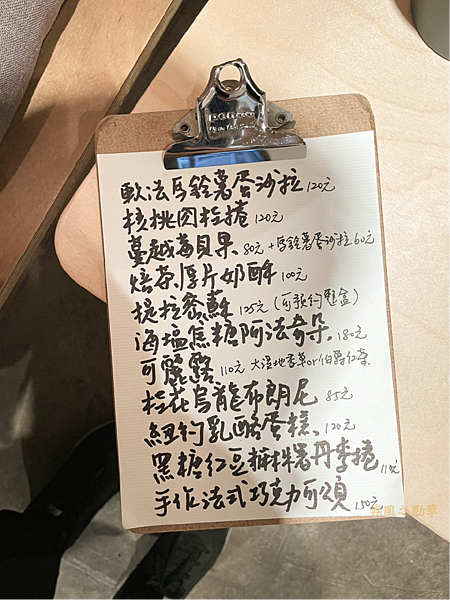 PENCO
軟法馬鈴薯蛋沙拉 120元
核桃肉桂捲 120元
蔓越莓貝果 80元 +馬鈴薯蛋沙拉60元
焙茶厚片奶酥 100元
提拉蜜蘇 125元（可預約整盒）
海塩焦糖阿法奇朵. 180元
可麗露 110元 大溪地香草or伯爵紅茶.
桂花烏龍布朗尼 85元
紐約乳酪蛋糕、120元
黑糖紅豆麻糬丹麥捲 110元
手作法式巧克力可頌 150元
疾風之勁草